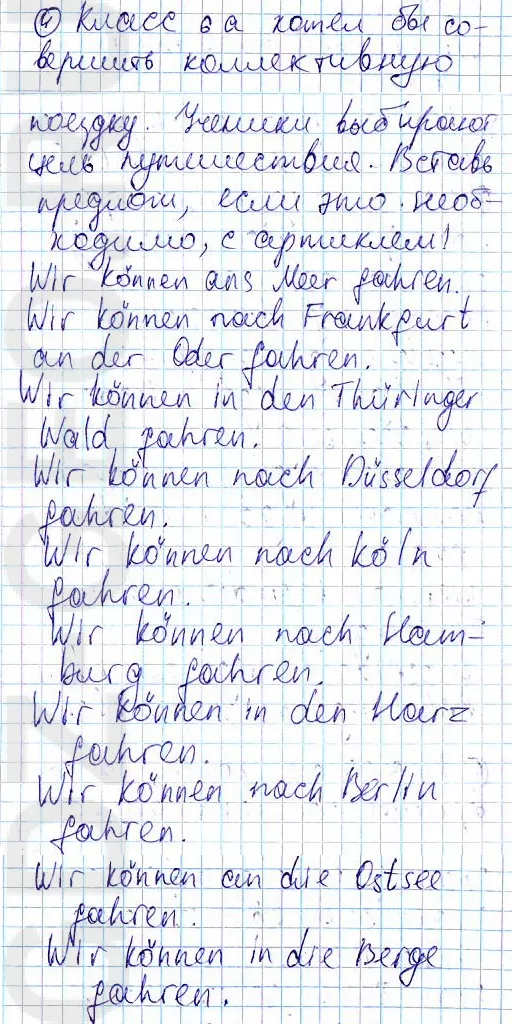 ④ Класс 6 а хотел бы со-
вершить коллективную
поездку. Ученики выбирают
цель путешествия. Вставь
предлоги, если это необ-
ходимо, с артиклем!
Wir können ans Meer fahren.
Wir können nach Frankfurt
an der Oder fahren.
Wir können in den Thüringer
Wald fahren.
Wir können nach Düsseldorf
fahren.
Wir können nach Köln
fahren.
Wir können nach Ham-
burg fahren.
Wir können in den Harz
fahren.
Wir können nach Berlin
fahren.
Wir können an die Ostsee
fahren.
Wir können in die Berge
fahren.